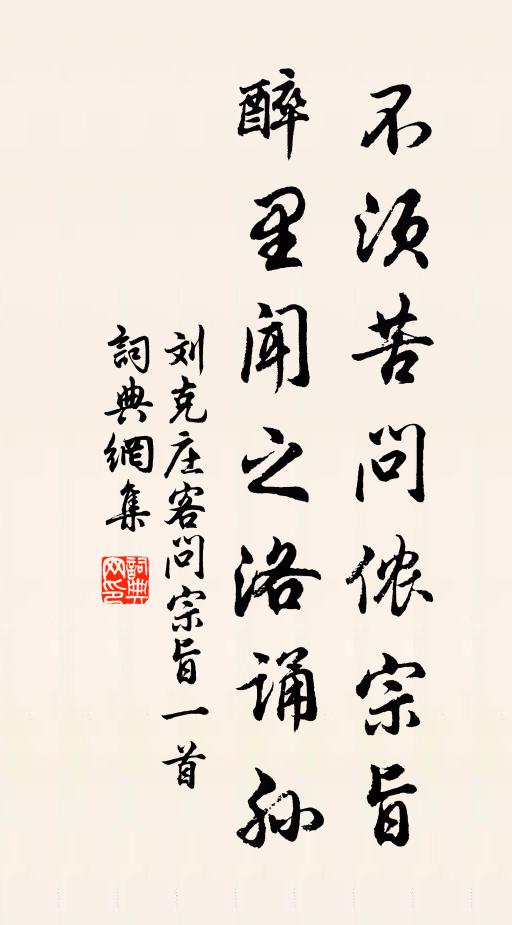 不须苦问侬宗旨
醉里闻之洛诵孙
刘克庄客问宗旨一首
詞典網集
詞典网印